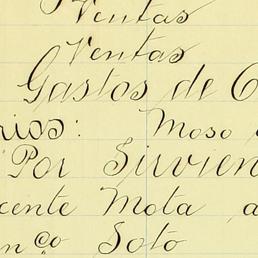 Ventas
Ventas
Gastos de C
rios: Moso
Por Sirvien
cente Mota a
nco Soto